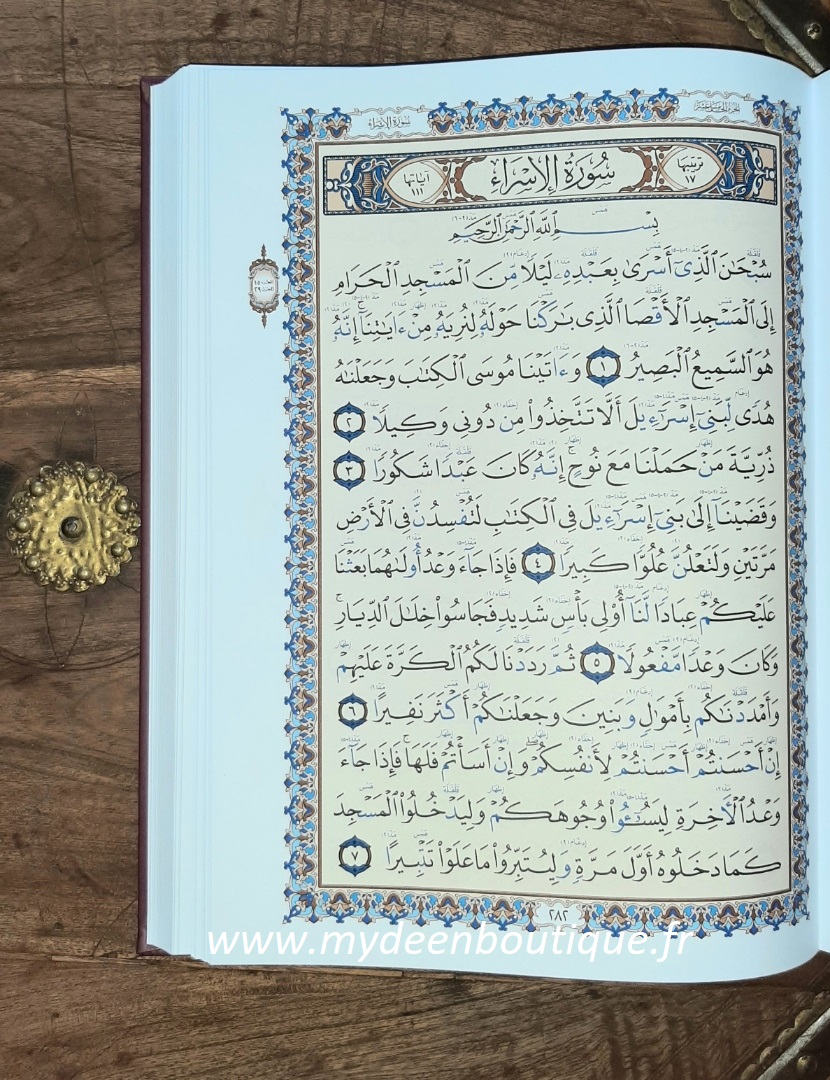 الجزء الخامس عشر
سورة الإسراء
ترتيبها ١٧
سُورَةُ الإِسۡرَاءِ
آياتها ١١١
بِسۡمِ ٱللَّهِ ٱلرَّحۡمَٰنِ ٱلرَّحِيمِ
سُبۡحَٰنَ ٱلَّذِيٓ أَسۡرَىٰ بِعَبۡدِهِۦ لَيۡلٗا مِّنَ ٱلۡمَسۡجِدِ ٱلۡحَرَامِ
إِلَى ٱلۡمَسۡجِدِ ٱلۡأَقۡصَا ٱلَّذِي بَٰرَكۡنَا حَوۡلَهُۥ لِنُرِيَهُۥ مِنۡ ءَايَٰتِنَآۚ إِنَّهُۥ
هُوَ ٱلسَّمِيعُ ٱلۡبَصِيرُ ١ وَءَاتَيۡنَا مُوسَى ٱلۡكِتَٰبَ وَجَعَلۡنَٰهُ
هُدٗى لِّبَنِيٓ إِسۡرَٰٓءِيلَ أَلَّا تَتَّخِذُواْ مِن دُونِي وَكِيلٗا ٢
ذُرِّيَّةَ مَنۡ حَمَلۡنَا مَعَ نُوحٍۚ إِنَّهُۥ كَانَ عَبۡدٗا شَكُورٗا ٣
وَقَضَيۡنَآ إِلَىٰ بَنِيٓ إِسۡرَٰٓءِيلَ فِي ٱلۡكِتَٰبِ لَتُفۡسِدُنَّ فِي ٱلۡأَرۡضِ
مَرَّتَيۡنِ وَلَتَعۡلُنَّ عُلُوّٗا كَبِيرٗا ٤ فَإِذَا جَآءَ وَعۡدُ أُولَىٰهُمَا بَعَثۡنَا
عَلَيۡكُمۡ عِبَادٗا لَّنَآ أُوْلِي بَأۡسٖ شَدِيدٖ فَجَاسُواْ خِلَٰلَ ٱلدِّيَارِۚ
وَكَانَ وَعۡدٗا مَّفۡعُولٗا ٥ ثُمَّ رَدَدۡنَا لَكُمُ ٱلۡكَرَّةَ عَلَيۡهِمۡ
وَأَمۡدَدۡنَٰكُم بِأَمۡوَٰلٖ وَبَنِينَ وَجَعَلۡنَٰكُمۡ أَكۡثَرَ نَفِيرًا ٦
إِنۡ أَحۡسَنتُمۡ أَحۡسَنتُمۡ لِأَنفُسِكُمۡۖ وَإِنۡ أَسَأۡتُمۡ فَلَهَاۚ فَإِذَا جَآءَ
وَعۡدُ ٱلۡأٓخِرَةِ لِيَسُـُٔواْ وُجُوهَكُمۡ وَلِيَدۡخُلُواْ ٱلۡمَسۡجِدَ
كَمَا دَخَلُوهُ أَوَّلَ مَرَّةٖ وَلِيُتَبِّرُواْ مَا عَلَوۡاْ تَتۡبِيرًا ٧
٢٨٢
www.mydeenboutique.fr